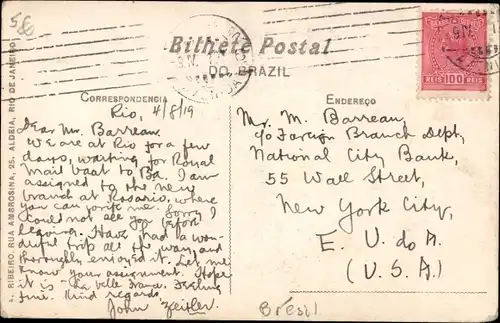 58
Bilhete Postal
DO BRAZIL
REIS 100 REIS
CORRESPONDENCIA
ENDEREÇO
Rio, 4/8/19
Dear Mr. Barreau.
We are at Rio for a few
days, waiting for Royal
Mail boat to Ba. I am
assigned to the new
branch at Rosario, where
you can write me. Sorry I
could not see you before
leaving. Have had a won-
derful trip all the way, and
thoroughly enjoyed it. Let me
know your assignment. Hope
it is - La belle France. Feeling
fine. Kind regards.
John Zeitler.
Mr. M. Barreau,
c/o Foreign Branch Dept,
National City Bank,
55 Wall Street,
New York City,
E. U. do A.
(U.S.A.)
Brésil
A. RIBEIRO, RUA AMBROSINA, 25, ALDEIA, RIO DE JANEIRO